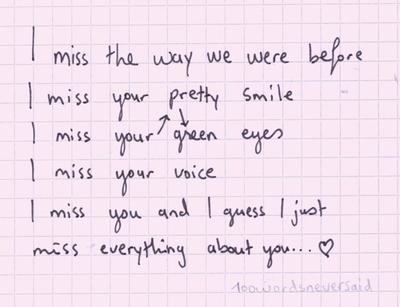 I miss the way we were before
I miss your pretty smile
I miss your green eyes
I miss your voice
I miss you and I guess I just
miss everything about you...♡
100wordsneversaid